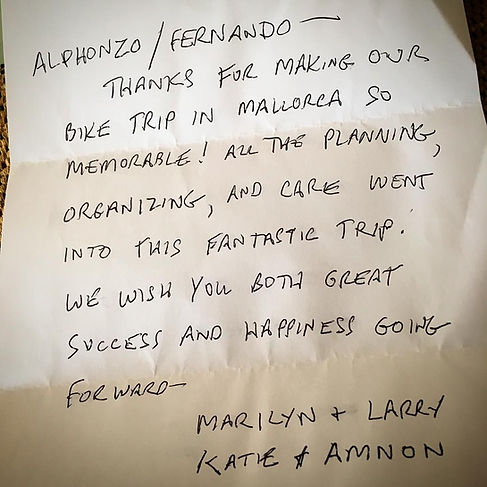 ALPHONZO/FERNANDO —
THANKS FOR MAKING OUR
BIKE TRIP IN MALLORCA SO
MEMORABLE! ALL THE PLANNING,
ORGANIZING, AND CARE WENT
INTO THIS FANTASTIC TRIP.
WE WISH YOU BOTH GREAT
SUCCESS AND HAPPINESS GOING
FORWARD—
MARILYN + LARRY
KATIE & AMNON